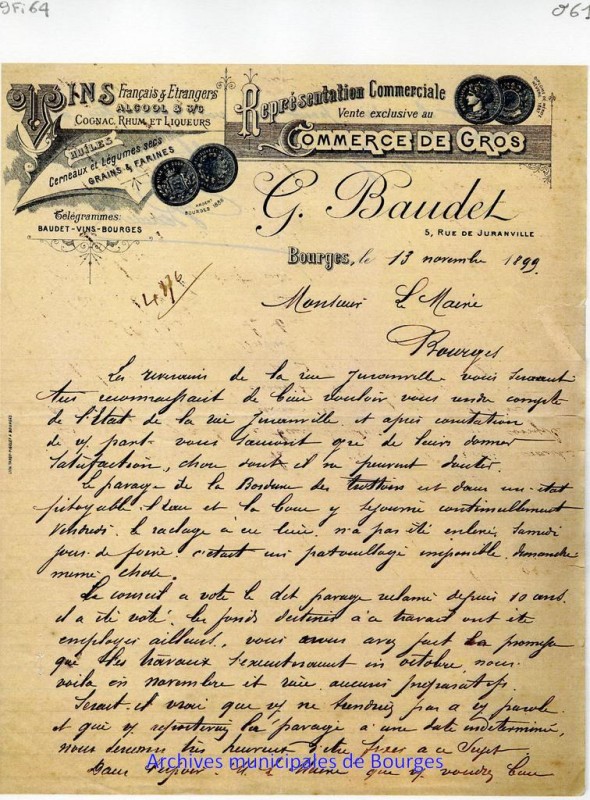 9Fi64
VINS Français & Etrangers
ALCOOL 3/6
COGNAC, RHUM, ET LIQUEURS
HUILES
Cerneaux et légumes secs
GRAINS & FARINES
ARGENT
BOURGES 1886
Télégrammes:
BAUDET-VINS-BOURGES
Représentation Commerciale
Vente exclusive au
COMMERCE DE GROS
G. Baudet
5, RUE DE JURANVILLE
Bourges, le 13 novembre 1899
Monsieur Le Maire
Bourges
Les riverains de la rue Juranville vous seraient
très reconnaissant de bien vouloir vous rendre compte
de l'Etat de la rue Juranville et après constatation
de v/ part vous sauront gré de leurs donner
satisfaction, chose dont il ne peuvent douter.
Le pavage de la Bordure des trottoirs est dans un état
pitoyable. l'eau et la boue y séjourne continuellement
Vendredi le raclage à été levée, n'a pas été enlevée, Samedi
jour de foire c'était un patrouillage impossible, dimanche
même chose.
Le conseil a voté le dit pavage réclamé depuis 10 ans.
il a été voté. les fonds destinés à ce travail ont été
employés ailleurs, vous avez fait la promesse
que les travaux s'executeraient en octobre, nous
voila en novembre et rien aucuns préparatifs.
Serait-il vrai que v/ ne tiendriez pas a v/ parole
et que v/ reporteriez le pavage a une date indéterminée,
nous serions très heureux d'être fixés a ce Sujet.
Dans l'espoir M. le Maire que v/ voudrez bien
Archives municipales de Bourges